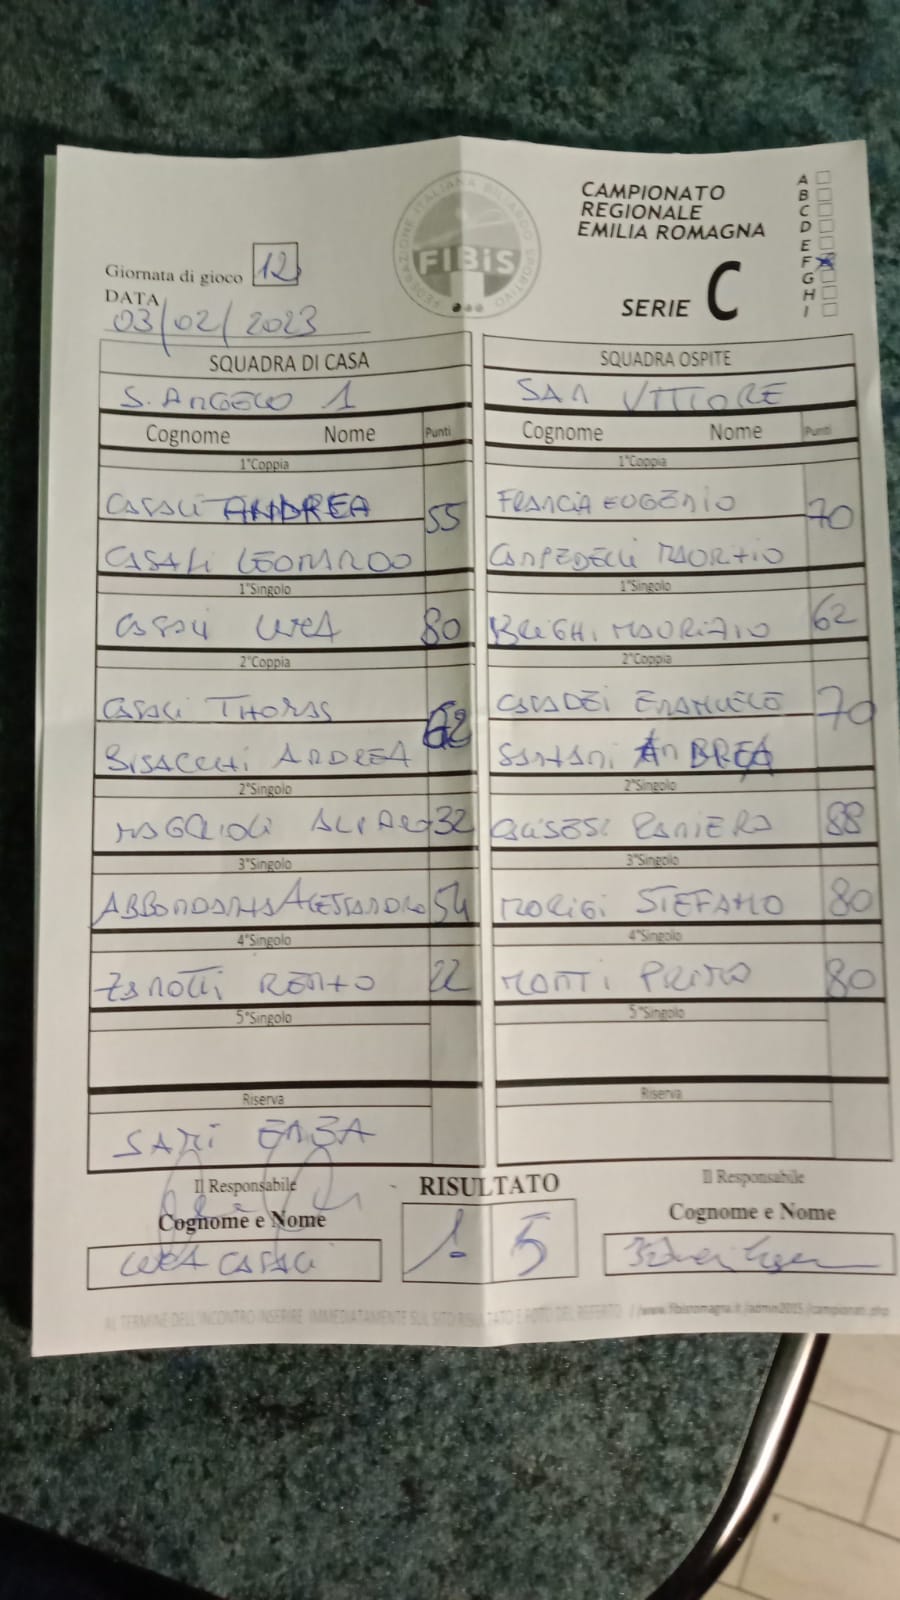 CAMPIONATO
REGIONALE
EMILIA ROMAGNA
SERIE C
A
B
C
D
E
F
G
H
I
FEDERAZIONE ITALIANA BILIARDO SPORTIVO
FIBiS
Giornata di gioco 12
DATA
03/02/2023
SQUADRA DI CASA
S. ANGELO 1
Cognome Nome Punti
1°Coppia
CASALI ANDREA
CASALI LEONARDO
55
1°Singolo
CASALI LUCA 80
2°Coppia
CASALI THOMAS
BISACCHI ANDREA
62
2°Singolo
MAGLIOLI ALVARO 32
3°Singolo
ABBONDANZA ALESSANDRO 54
4°Singolo
ZANOTTI RENATO 22
5°Singolo
Riserva
SAMI ENEA
SQUADRA OSPITE
SAN VITTORE
Cognome Nome Punti
1°Coppia
FRANCIA EUGENIO
CAMPEDELLI MAURIZIO
70
1°Singolo
BRIGHI MAURIZIO 62
2°Coppia
CASADEI EMANUELE
SANTANI ANDREA
70
2°Singolo
CALISESI RANIERO 88
3°Singolo
MORIGI STEFANO 80
4°Singolo
MONTI PRIMO 80
5°Singolo
Riserva
Il Responsabile
Cognome e Nome
LUCA CASALI
RISULTATO
1 - 5
Il Responsabile
Cognome e Nome
AL TERMINE DELL'INCONTRO INSERIRE IMMEDIATAMENTE SUL SITO RISULTATO E FOTO DEL REFERTO //www.fibisromagna.it/admin2015/campionati.php